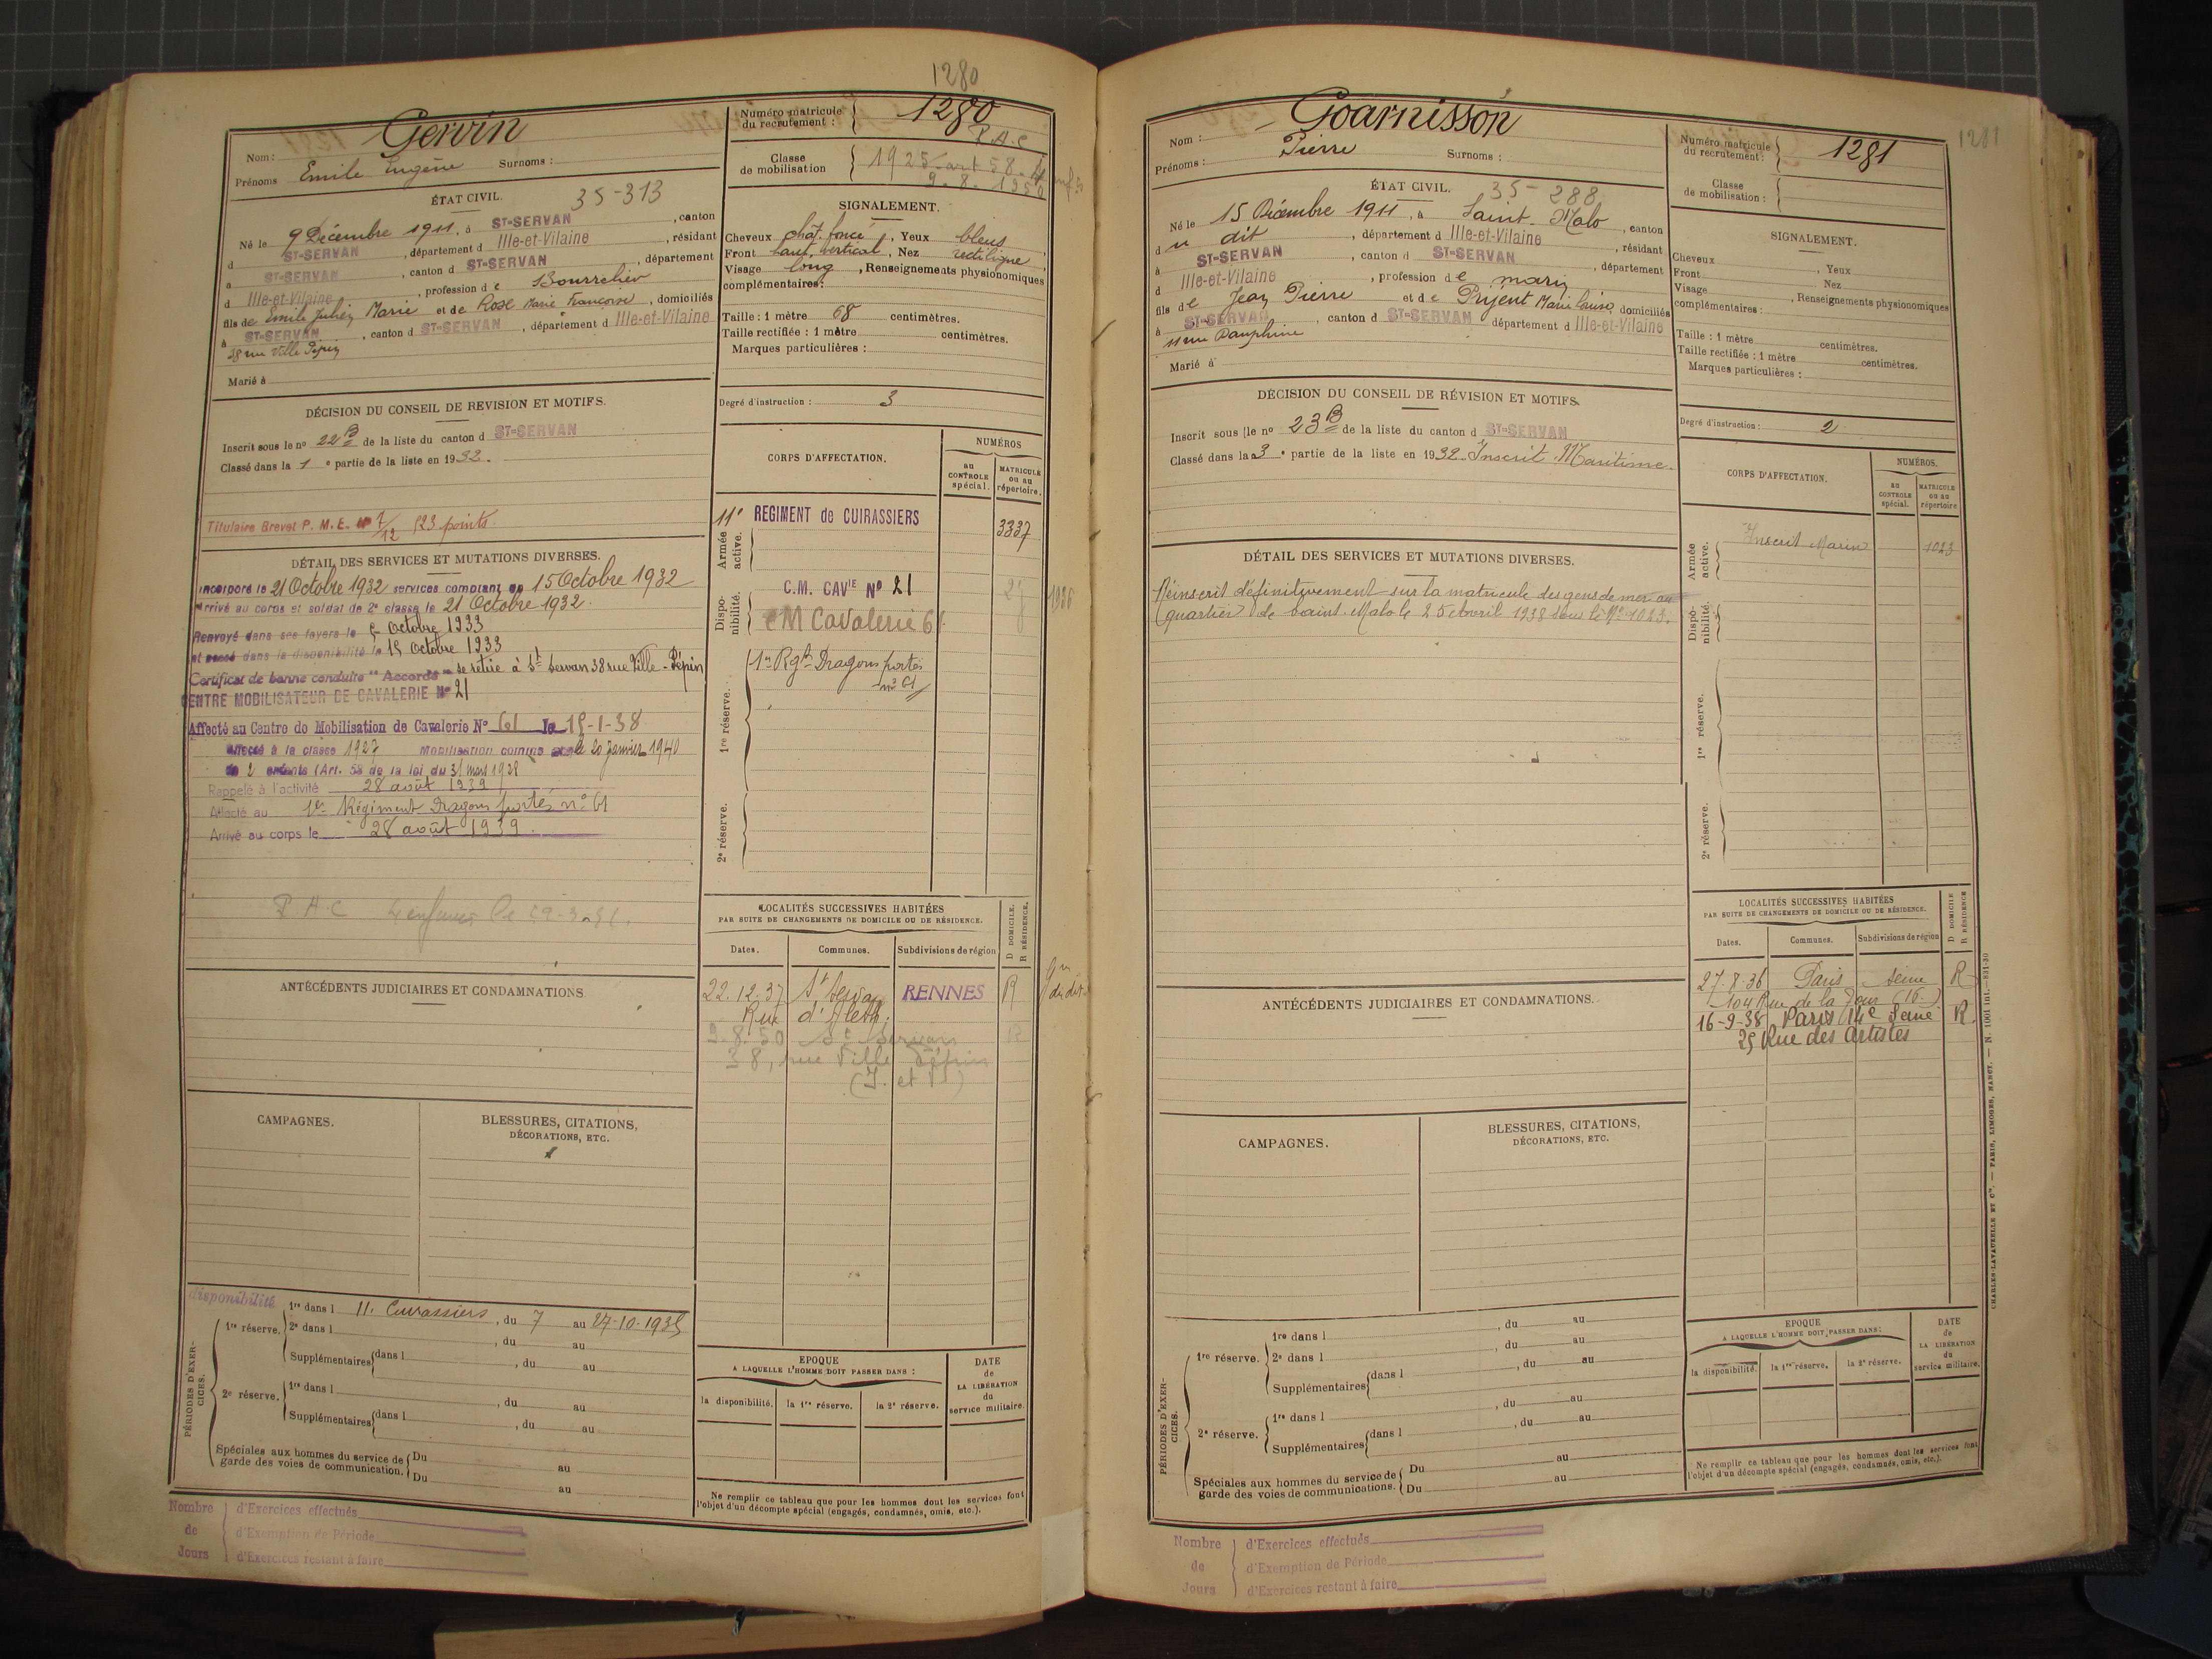 1280
Nom : Gervin
Prénoms Emile Eugène Surnoms :
Numéro matricule du recrutement : 1280
P.A.C
Classe de mobilisation 1925 art 58. 4
9.8.1950
ÉTAT CIVIL. 35-313
Né le 9 Décembre 1911, à ST-SERVAN, canton
d ST-SERVAN, département d Ille-et-Vilaine, résidant
à ST-SERVAN, canton d ST-SERVAN, département
d Ille-et-Vilaine, profession d e Bourrelier
fils de Emile Julien Marie et de Rose Marie Françoise, domiciliés
à ST-SERVAN, canton d ST-SERVAN, département d Ille-et-Vilaine
38 rue Ville Pépin
Marié à
SIGNALEMENT.
Cheveux chat. foncé, Yeux bleus
Front haut, vertical, Nez rectiligne
Visage long, Renseignements physionomiques
complémentaires :
Taille : 1 mètre 68 centimètres.
Taille rectifiée : 1 mètre centimètres.
Marques particulières :
Degré d'instruction : 3
DÉCISION DU CONSEIL DE REVISION ET MOTIFS.
Inscrit sous le nº 22 B de la liste du canton d ST-SERVAN
Classé dans la 1 e partie de la liste en 1932.
Titulaire Brevet P. M. E. Nº 123 points
DÉTAIL DES SERVICES ET MUTATIONS DIVERSES.
Incorporé le 21 Octobre 1932 services comptant du 15 Octobre 1932
Arrivé au corps et soldat de 2e classe le 21 Octobre 1932.
Renvoyé dans ses foyers le Octobre 1933
et passé dans la disponibilité le 15 Octobre 1933
Certificat de bonne conduite "Accordé" se retire à St Servan 38 rue Ville-Pépin
CENTRE MOBILISATEUR DE CAVALERIE Nº 21
Affecté au Centre de Mobilisation de Cavalerie Nº 61 le 15-1-38
Affecté à la classe 1927 Mobilisation comme le 20 janvier 1940
de 2 enfants (Art. 58 de la loi du 31 mars 1928
Rappelé à l'activité 28 août 1939
Affecté au 1er Régiment Dragons portés nº 61
Arrivé au corps le 28 août 1939.
P.A.C 4 enfants
CORPS D'AFFECTATION.
NUMÉROS
au CONTROLE spécial.
MATRICULE ou au répertoire.
Armée active.
11e REGIMENT de CUIRASSIERS 3337
Disponibilité.
C.M. CAVIE Nº 21
CM Cavalerie 61
1936
1re réserve.
1er Rgt Dragons portés
nº 61
2e réserve.
LOCALITÉS SUCCESSIVES HABITÉES
PAR SUITE DE CHANGEMENTS DE DOMICILE OU DE RÉSIDENCE.
D DOMICILE.
R RÉSIDENCE.
Dates. Communes. Subdivisions de région
22.12.37 St Servan RENNES R
Rue d'Aleth.
9.8.50 St Servan R
38, rue Ville Pépin
(I. et V)
ANTÉCÉDENTS JUDICIAIRES ET CONDAMNATIONS
CAMPAGNES.
BLESSURES, CITATIONS,
DÉCORATIONS, ETC.
disponibilité
PÉRIODES D'EXERCICES.
1re réserve. 1re dans l 11. Cuirassiers, du 7 au 24-10-1935
2e dans l , du au
Supplémentaires dans l , du au
2e réserve. 1re dans l , du au
Supplémentaires dans l , du au
Spéciales aux hommes du service de garde des voies de communication. Du au
Du au
EPOQUE
A LAQUELLE L'HOMME DOIT PASSER DANS :
la disponibilité. la 1re réserve. la 2e réserve.
DATE de LA LIBÉRATION du service militaire.
Ne remplir ce tableau que pour les hommes dont les services font
l'objet d'un décompte spécial (engagés, condamnés, omis, etc.).
Nombre de Jours
d'Exercices effectués
d'Exemption de Période
d'Exercices restant à faire
1281
Nom : Goarnisson
Prénoms : Pierre Surnoms :
Numéro matricule du recrutement : 1281
Classe de mobilisation :
ÉTAT CIVIL. 35-288
Né le 15 Décembre 1911, à Saint-Malo, canton
d u dit, département d Ille-et-Vilaine, résidant
à ST-SERVAN, canton d ST-SERVAN, département
d Ille-et-Vilaine, profession d e marin
fils d e Jean Pierre et d e Prijent Marie Louise, domiciliés
à ST-SERVAN, canton d ST-SERVAN département d Ille-et-Vilaine
11 rue Dauphine
Marié à
SIGNALEMENT.
Cheveux , Yeux
Front Nez
Visage , Renseignements physionomiques
complémentaires :
Taille : 1 mètre centimètres.
Taille rectifiée : 1 mètre centimètres.
Marques particulières :
Degré d'instruction : 2
DÉCISION DU CONSEIL DE RÉVISION ET MOTIFS.
Inscrit sous le nº 23 B de la liste du canton d ST-SERVAN
Classé dans la 3 e partie de la liste en 1932. Inscrit Maritime.
DÉTAIL DES SERVICES ET MUTATIONS DIVERSES.
Réinscrit définitivement sur la matricule des gens de mer au
quartier de Saint-Malo le 25 Avril 1938 sous le Nº 1023.
CORPS D'AFFECTATION.
NUMÉROS.
au CONTROLE spécial.
MATRICULE ou au répertoire
Armée active.
Inscrit Marin 1023
Disponibilité.
1re réserve.
2e réserve.
LOCALITÉS SUCCESSIVES HABITÉES
PAR SUITE DE CHANGEMENTS DE DOMICILE OU DE RÉSIDENCE.
D DOMICILE
R RÉSIDENCE
Dates. Communes. Subdivisions de région
27-8-36 Paris Seine R
104 Rue de la Tour (16e)
16-9-38 Paris 14e Seine R.
25 Rue des Artistes
ANTÉCÉDENTS JUDICIAIRES ET CONDAMNATIONS.
CAMPAGNES.
BLESSURES, CITATIONS,
DÉCORATIONS, ETC.
PÉRIODES D'EXERCICES.
1re réserve. 1re dans l , du au
2e dans l , du au
Supplémentaires dans l , du au
2e réserve. 1re dans l , du au
Supplémentaires dans l , du au
Spéciales aux hommes du service de garde des voies de communications. Du au
Du au
EPOQUE
A LAQUELLE L'HOMME DOIT PASSER DANS :
la disponibilité. la 1re réserve. la 2e réserve.
DATE de LA LIBÉRATION du service militaire.
Ne remplir ce tableau que pour les hommes dont les services font
l'objet d'un décompte spécial (engagés, condamnés, omis, etc.).
CHARLES-LAVAUZELLE ET Cie. — PARIS, LIMOGES, NANCY. — N. 1001 int.—831-30
Nombre de Jours
d'Exercices effectués
d'Exemption de Période
d'Exercices restant à faire